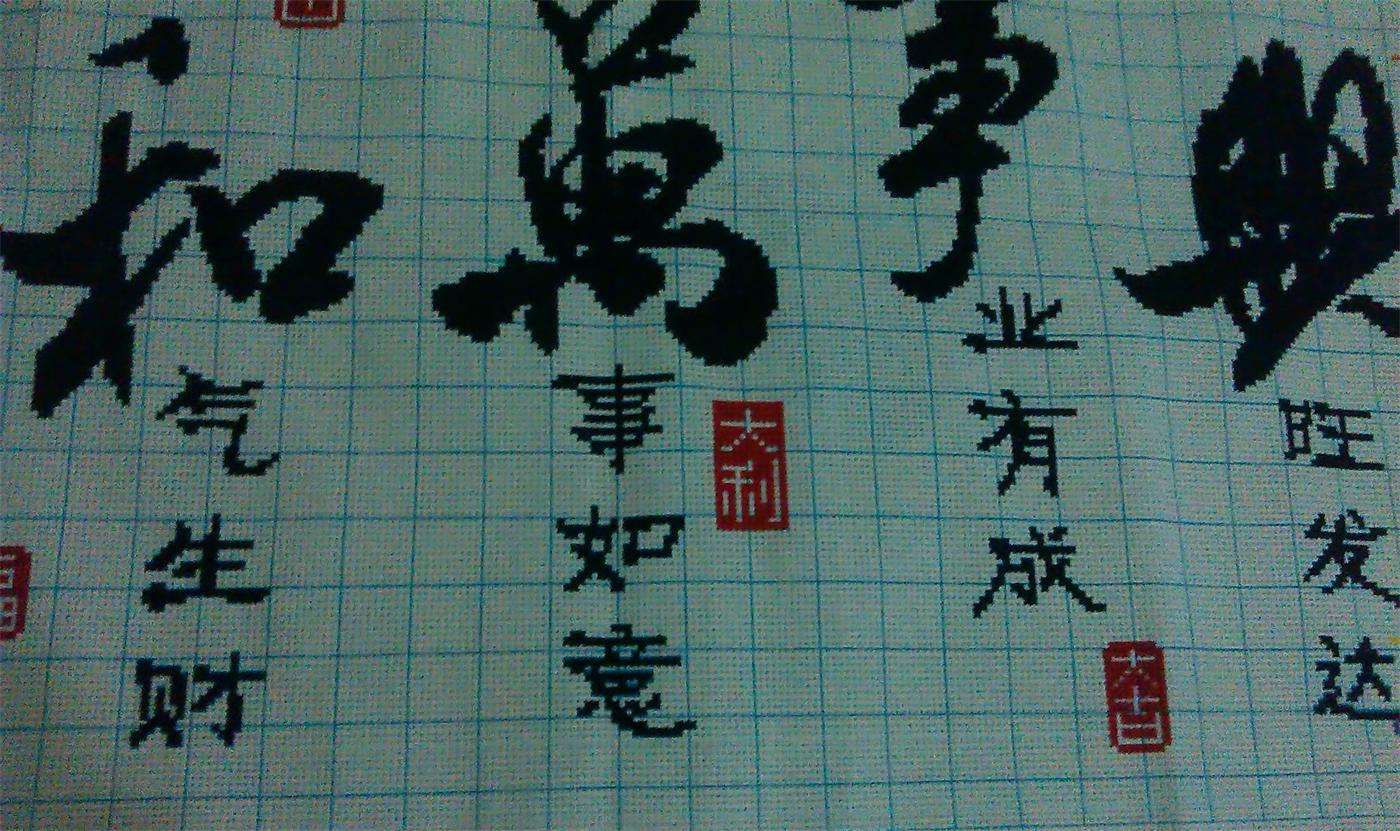 和气生财
萬事如意
大利
事业有成
大吉
興旺发达